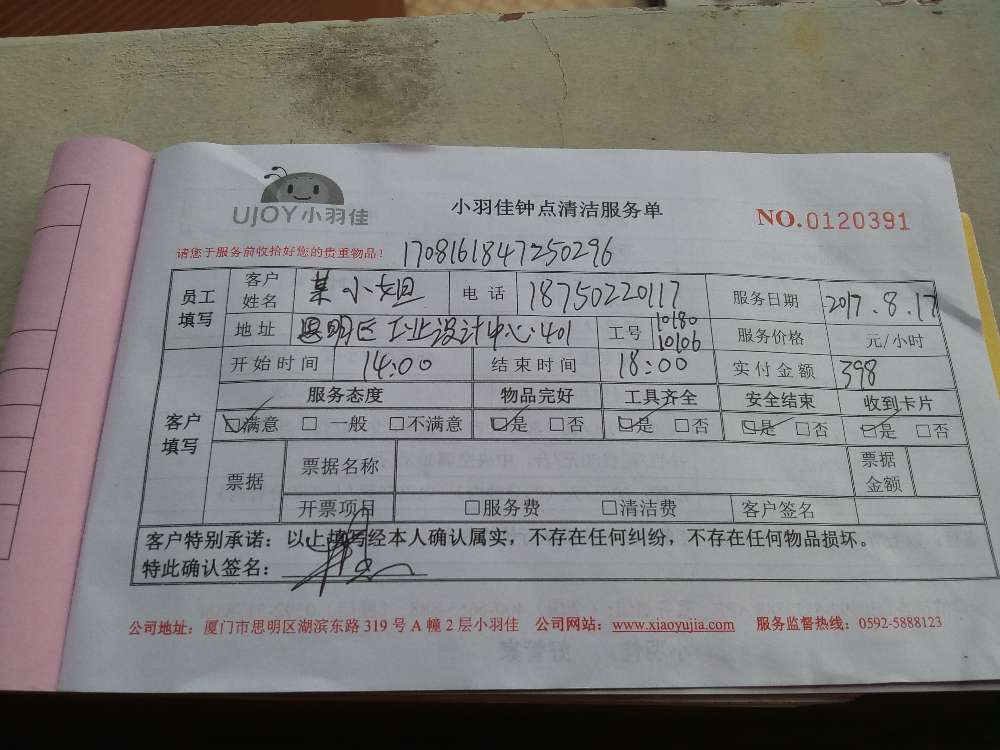 UJOY小羽佳
小羽佳钟点清洁服务单
NO.0120391
请您于服务前收拾好您的贵重物品!
1708161847250296
员工填写 客户姓名 某小姐 电话 18750220117 服务日期 2017.8.17
地址 思明区工业设计中心401 工号 10180 10106 服务价格 元/小时
客户填写 开始时间 14:00 结束时间 18:00 实付金额 398
服务态度 物品完好 工具齐全 安全结束 收到卡片
☑满意 □一般 □不满意 ☑是 □否 ☑是 □否 ☑是 □否 ☑是 □否
票据 票据名称 票据金额
开票项目 □服务费 □清洁费 客户签名
客户特别承诺:以上填写经本人确认属实,不存在任何纠纷,不存在任何物品损坏。
特此确认签名:
公司地址:厦门市思明区湖滨东路 319 号 A 幢 2 层小羽佳 公司网站:www.xiaoyujia.com 服务监督热线:0592-5888123